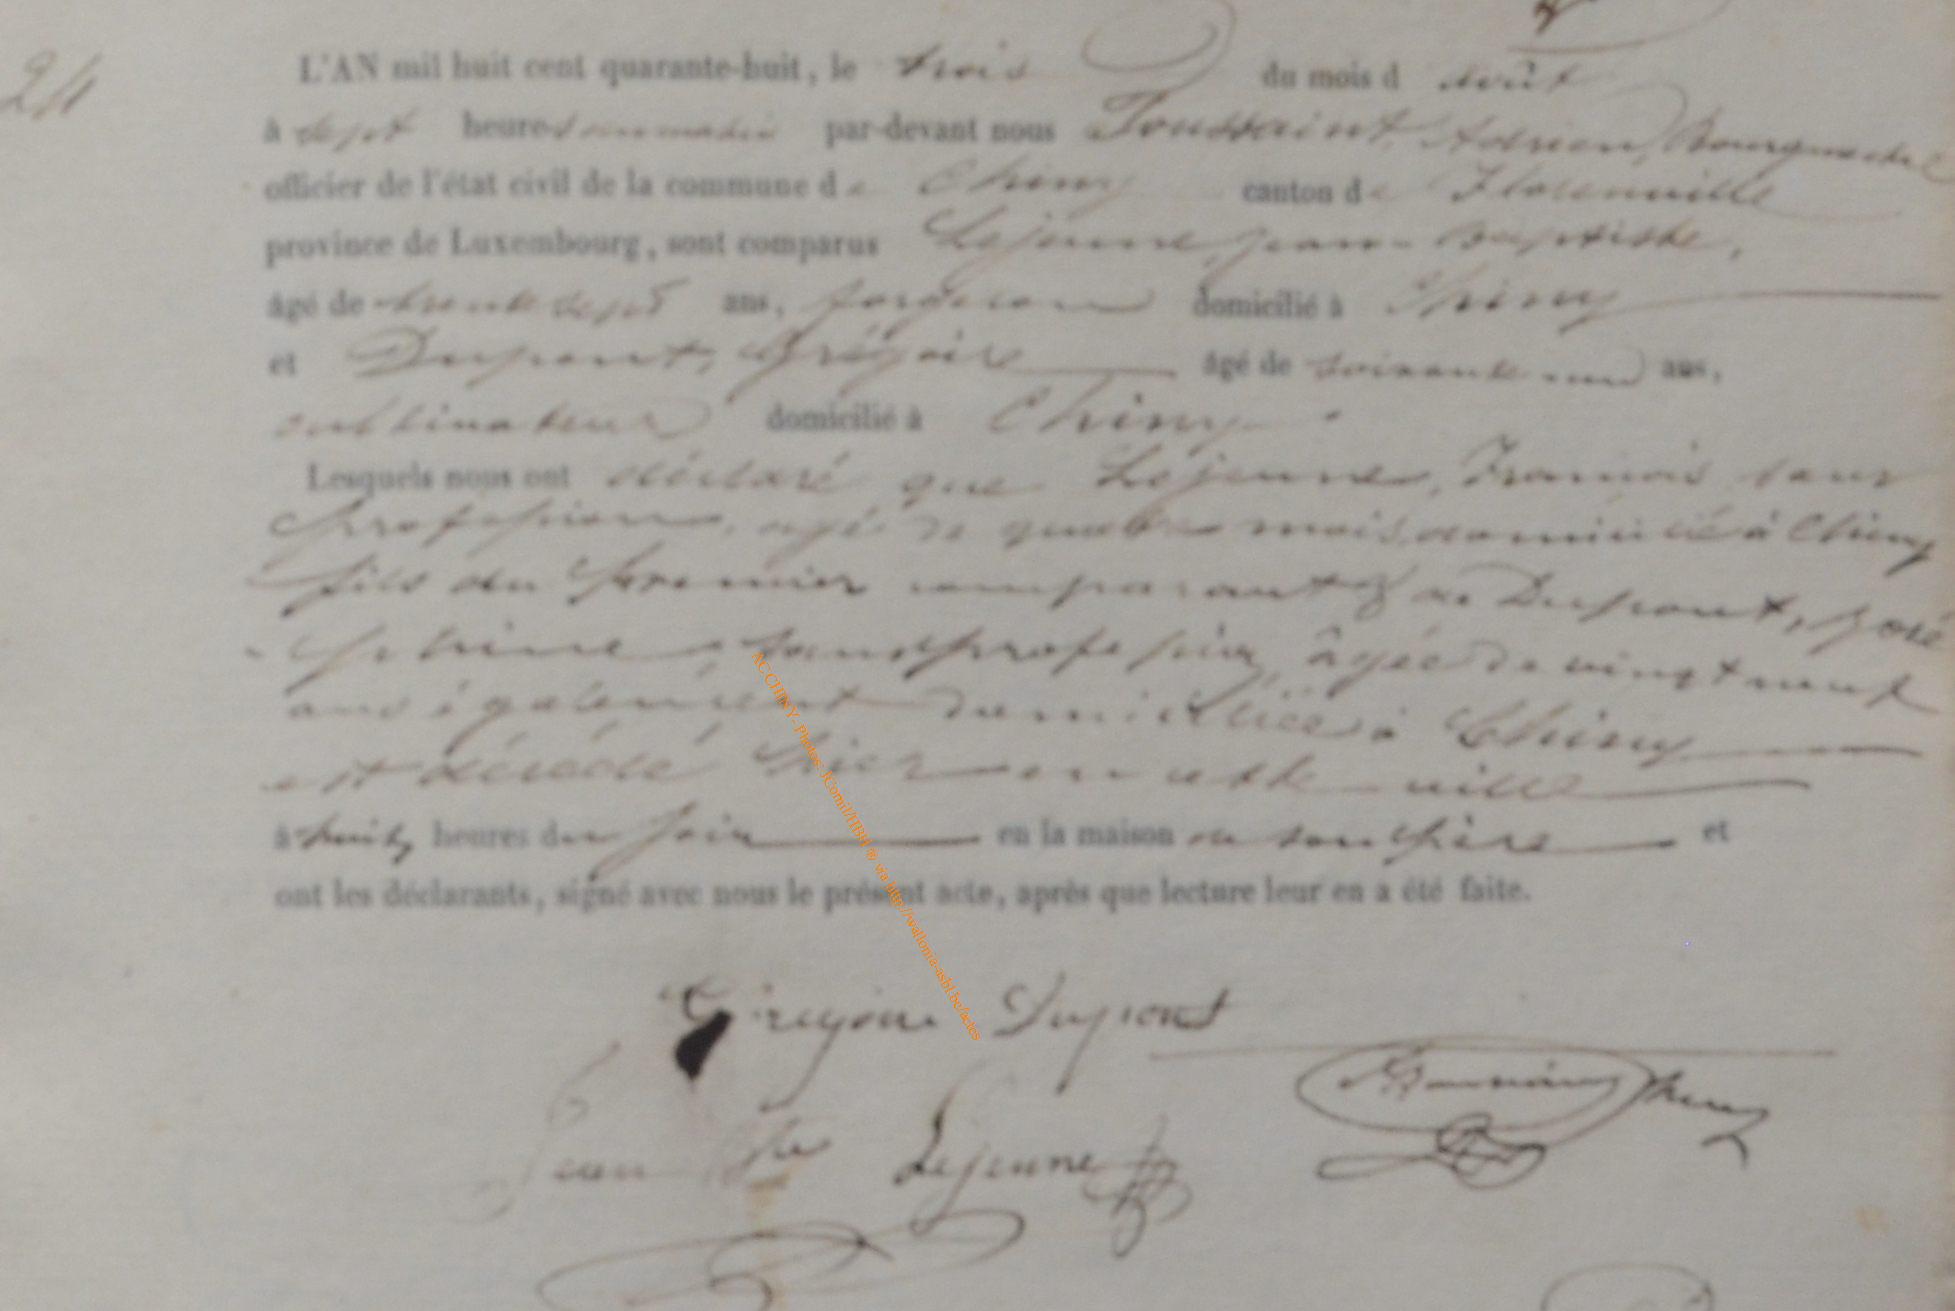 24
L'AN mil huit cent quarante-huit, le trois du mois d août
à sept heures du matin par-devant nous Toussaint, Adrien, Bourgmestre
officier de l'état civil de la commune de Chiny canton de Florenville
province de Luxembourg, sont comparus Lejeune, jean-Baptiste,
âgé de trente sept ans, forgeron domicilié à Chiny
et Dupont, Grégoire âgé de soixante ans,
cultivateur domicilié à Chiny.
Lesquels nous ont déclaré que Lejeune, François sans
profession, agé de quatre mois, domicilié à Chiny
fils du premier comparant & de Dupont, José
phine, sans profession, âgée de vingt neuf
ans également domiciliée à Chiny
est décédé hier en cette ville
à huit heures du soir en la maison de son père et
ont les déclarants, signé avec nous le présent acte, après que lecture leur en a été faite.
Grégoire Dupont
Jean Bte Lejeune
AC CHINY- Photos: JCornil/HBH ® via http://wallonia-asbl.be/actes